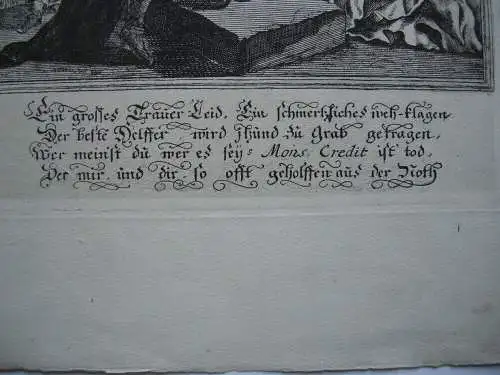 Ein grosses Trauer Leid, Ein schmertzliches weh-klagen
Der beste Helffer wird ihund zu Grab getragen,
Wer meinst du wer es sey: Mons. Credit ist tod,
Der mir und dir so offt geholffen aus der Noth